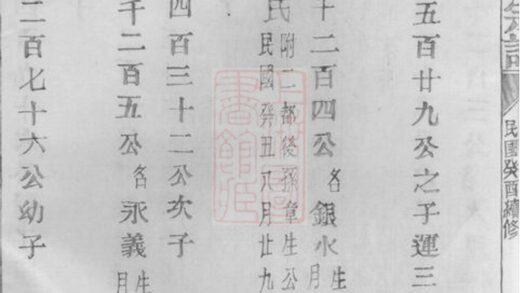 民國癸酉續修
五百廿九公之子運三
千二百四公名銀水生
月
民附二都後孫章生公
民國癸丑八月廿九
四百三十二公次子
千二百五公名永義生
月
二百七十六公幼子